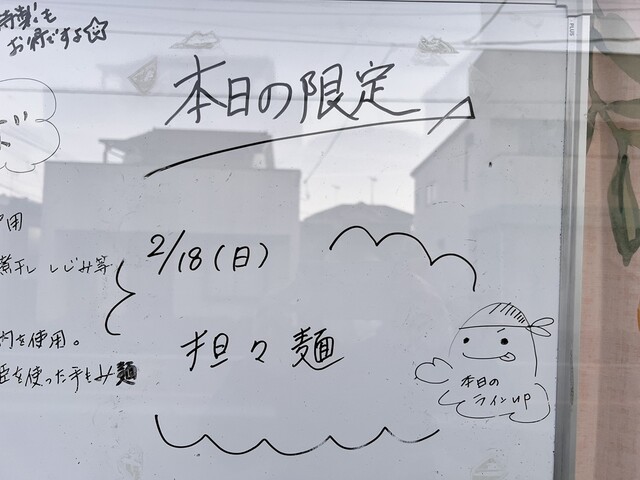 お得ですよ☆
本日の限定
2/18(日)
煮干し しじみ等
を使用。
を使った手もみ麺
担々麺
本日の
ラインUP